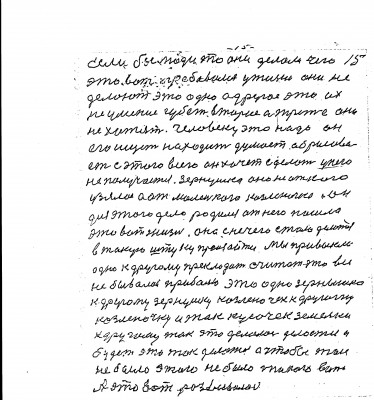 - 15 -
если бы люди то они делали чего 15
это вот прибавила у жизни они не
делают это одно а другое это их
не умение губет второе а трете они
не хотят. Человеку это надо он
его ищет находит думает обрисова
ет с этого всего он хочет сделат у него
не получается. Зернушка она не от кого
узялась а от маленького козленочка он
для этого дело родился от него пошла
это вот жизн. она с нечего стала делатся
в такую штуку произайти Мы привыкли
одно к другому прекладат считат это
не бывалая прибыль это одно зернышко
к другому зернушку козленочек к другому
козленочку и так кусочек земельки
к другому так это делалос делается и
будет это так делатся а чтобы там
не было этого не было такого вот
А это вот